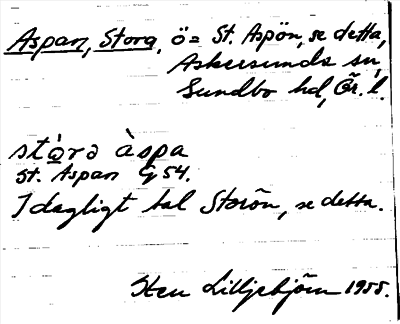 Aspan, Stora, ö = St. Aspön, se detta,
Askersunds sn,
Sundbo hd, Ör. l.
stòra àspa
St. Aspan G 54.
I dagligt tal Storön, se detta.
Sten Lilljebjörn 1955.